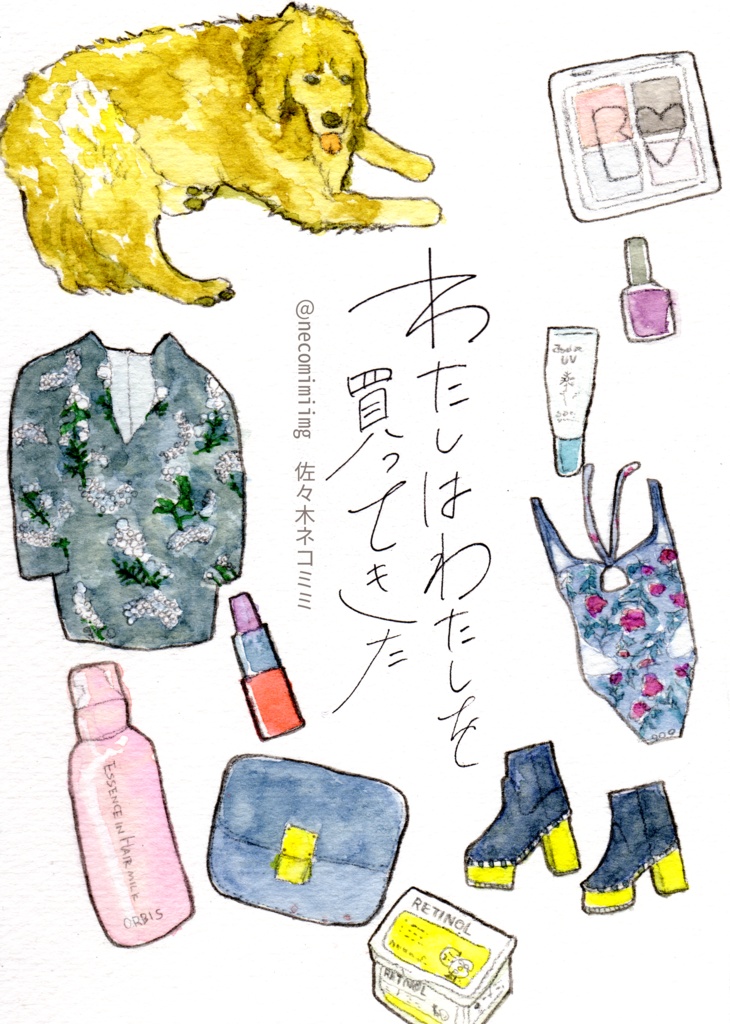 わたしはわたしを
買ってきた
@necomimiimg 佐々木ネコミミ
UV
ESSENCE IN HAIR MILK
ORBIS
RETINOL
RETINOL